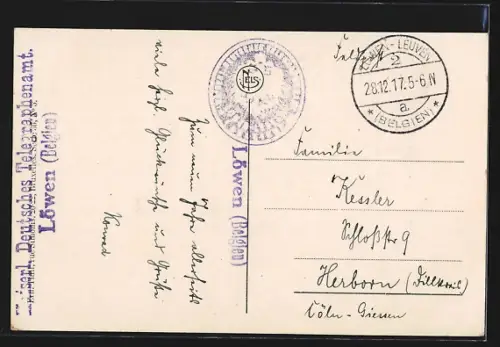 Kaiserl. Deutsches Telegraphenamt.
Löwen (Belgien)
Löwen (Belgien)
Zum neuen Jahre allerseits
viele herzl. Glückwünsche und Grüße
Konrad
Feldpost
LEUVEN
2
28.12.17. 5-6 N
a
* (BELGIEN) *
Familie
Kessler
Schloßstr 9
Herborn (Dillkreis)
Cöln-Giessen